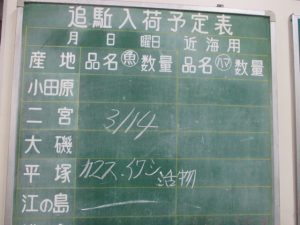 追駈入荷予定表
月 日 曜日 近海用
産地 品名 魚 数量 品名 ハマ 数量
小田原
二宮 3/14
大磯
平塚 カマス、イワシ 活物
江の島